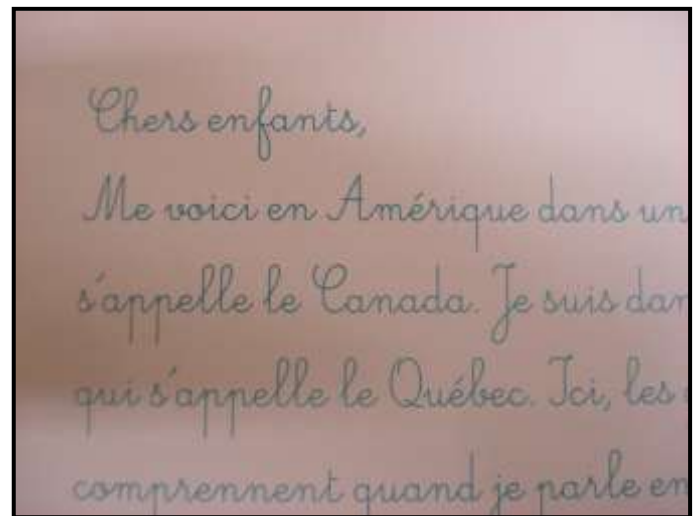 Chers enfants,
Me voici en Amérique dans un
s'appelle le Canada. Je suis dan
qui s'appelle le Québec. Ici, les
comprennent quand je parle en